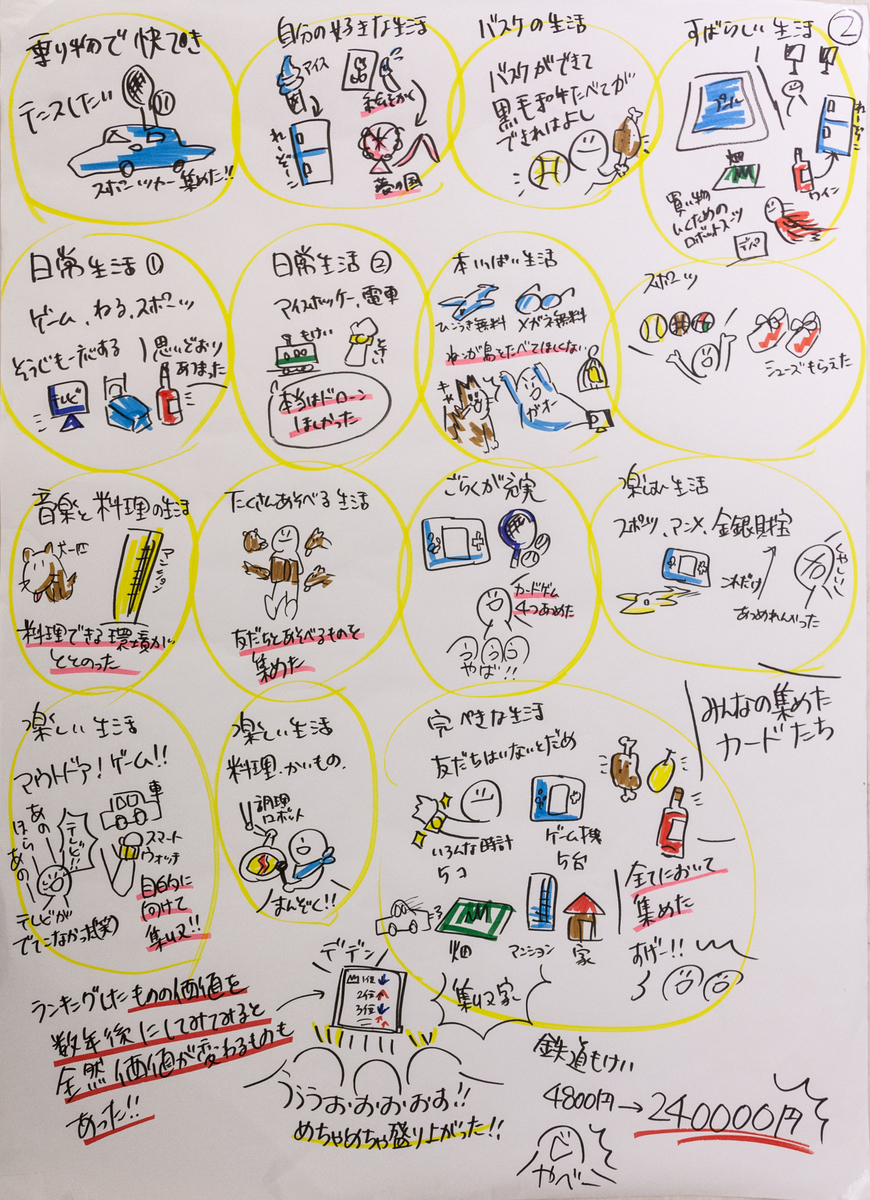 ②
乗り物で快てき
テニスしたい
スポーツカー集めた!!
自分の好きな生活
アイス
れーぞーこ
夢の国
バスケの生活
バスケができて
黒毛和牛たべてが
できればよし
すばらしい生活
プール
れーぞーこ
畑
ワイン
買い物
いくための
ロボットスーツ
デパ
日常生活①
ゲーム、ねる、スポーツ
そうじも一応する
思いどおり
あつまった
テレビ
日常生活②
アイスホッケー、電車
もけい
とけい
本当はドローン
ほしかった
本いっぱい生活
ひこうき無料
メガネ無料
ねこが鳥をたべてほしくない
ガオー
スポーツ
シューズもらえた
音楽と料理の生活
犬一匹
マンション
料理できる環境が
ととのった
たくさんあそべる生活
友だちとあそべるものを
集めた
ごらくが充実
カードゲーム
4つあつめた
やば!!
楽しい生活
スポーツ、アニメ、金銀財宝
これだけ
あつめれんべった
くやしい!
みんなの集めた
カードたち
楽しい生活
アウトドア!ゲーム!!
車
スマート
ウォッチ
あの
ほら
あの
テレビ!!
テレビが
でてこなかった(笑)
目的に
向けて
集収!!
楽しい生活
料理、かいもの、
調理
ロボット
まんぞく!!
完ぺきな生活
友だちはいないとだめ
いろんな時計
5コ
ゲーム機
5台
畑
マンション
家
全てにおいて
集めた
すげー!!
集収家
デデン
1位
2位
3位
ランキングしたものの価値を
数年後にしてみてみると
全然価値が変わるものも
あった!!
うぅうおおおおお!!
めちゃめちゃ盛り上がった!!
鉄道もけい
4800円→240000円
やべー